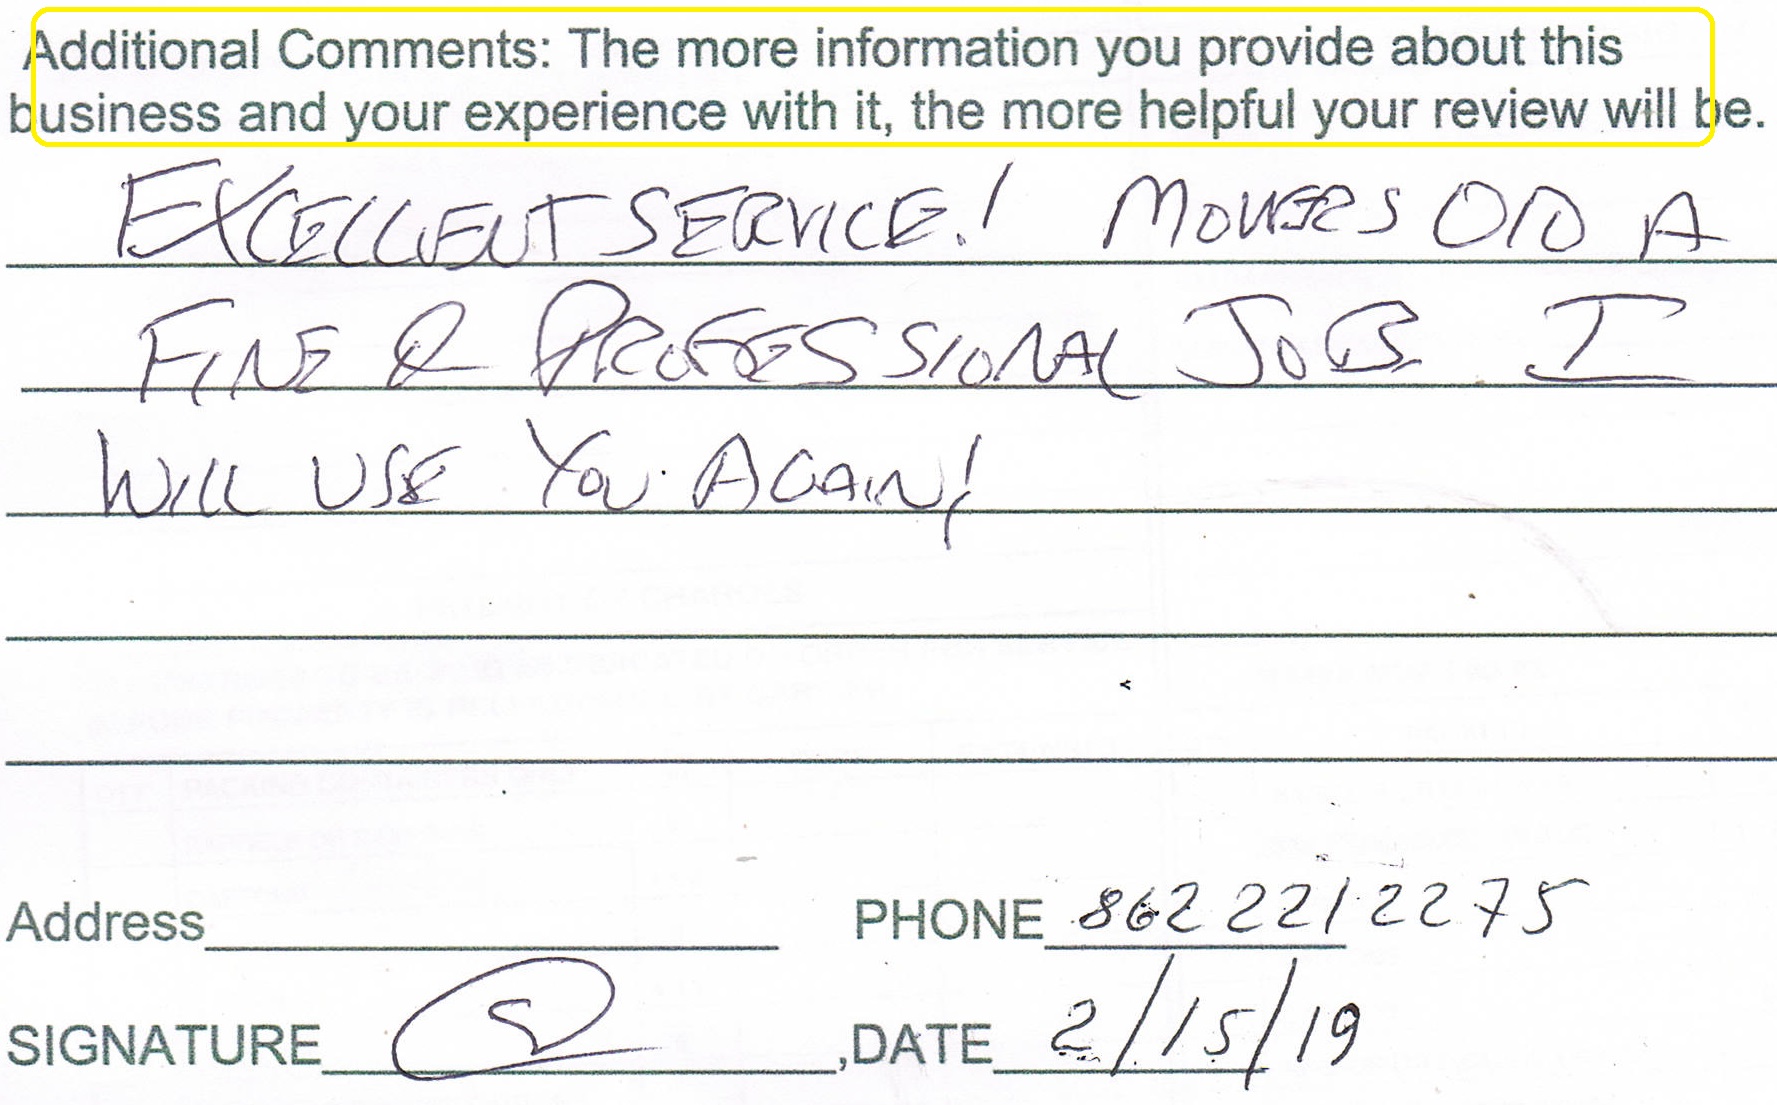 Additional Comments: The more information you provide about this
business and your experience with it, the more helpful your review will be.
EXCELLENT SERVICE! MOVERS DID A
FINE & PROFESSIONAL JOB. I
WILL USE YOU AGAIN!
Address PHONE 862 221 2275
SIGNATURE ,DATE 2/15/19